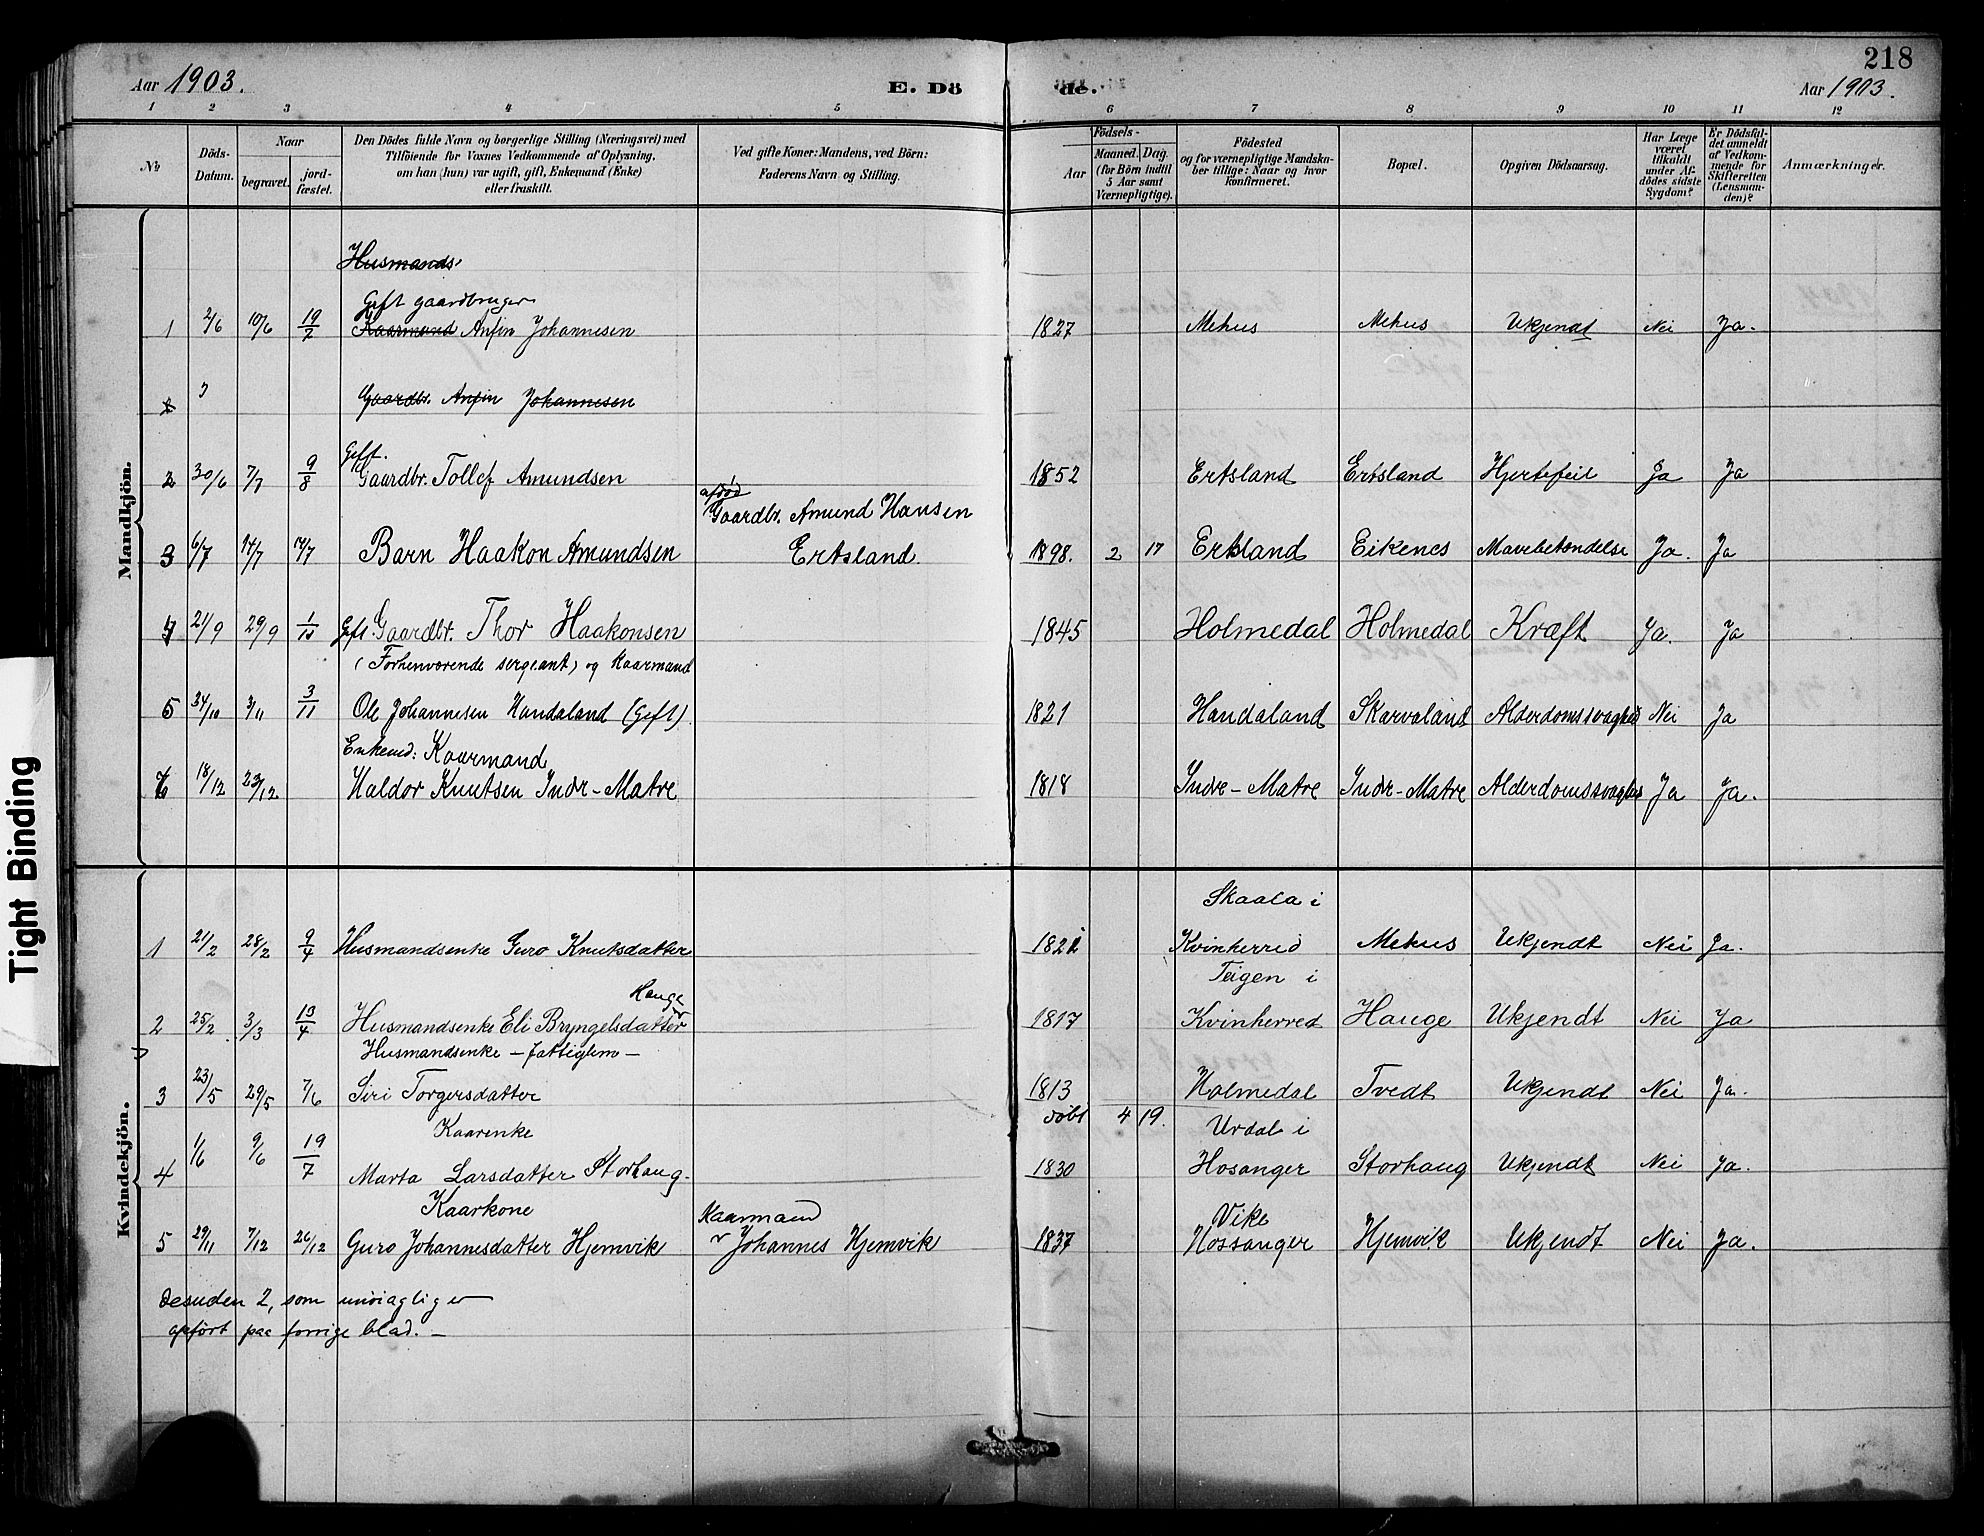 218
Aar 1903. E. Dö de. Aar 1903.
1 2 3 4 5 6 7 8 9 10 11 12
No Döds-Datum. Naar begravet. jordfæstet. Den Dödes fulde Navn og borgerlige Stilling (Næringsvei) med Tilföiende for Voxnes Vedkommende af Oplysning, om han (hun) var ugift, gift, Enkemand (Enke) eller fraskilt. Ved gifte Koner: Mandens, ved Börn: Faderens Navn og Stilling. Födsels- Aar Maaned. Dag. (for Börn indtil 5 Aar samt Værnepligtige). Födested og for værnepligtige Mandskaber tillige: Naar og hvor konfirmeret. Bopæl. Opgiven Dödsaarsag. Har Læge været tilkaldt under Afdödes sidste Sygdom? Er Dödsfaldet anmeldt af Vedkommende for Skifteretten (Lensmanden)? Anmærkninger.
Mandkjön.
Husmands
Gift gaardbruger
1 2/6 10/6 19/7 Kaarmand Anfin Johannesen 1827 Mehus Mehus Ukjendt Nei Ja.
3
Gaardbr. Anfin Johannesen
Gift.
2 30/6 7/7 9/8 Gaardbr. Tollef Amundsen 1852 Ertsland Ertsland Hjertefeil Ja Ja
afdöd
Gaardbr. Amund Hansen
3 6/7 14/7 14/7 Barn Haakon Amundsen Ertsland. 1898. 2 17 Ertsland Eikenes Mavebetændelse Ja. Ja
4 21/9 29/9 1/10 Gift Gaardbr. Thor Haakonsen 1845 Holmedal Holmedal Kræft Ja. Ja
(Forhenværende sergeant) og Kaarmand
5 /10 3/11 3/11 Ole Johannesen Handaland (Gift) 1821 Handaland Skarvaland Alderdomssvaghed Nei Ja
Enkemd: Kaarmand
6 18/12 23/12 Haldor Knutsen Indr-Matre 1818 Indre-Matre Indr-Matre Alderdomssvaghed Ja Ja.
Kvindekjön.
Skaala i
1 21/2 28/2 9/4 Husmandsenke Guro Knutsdatter 1821 Kvinherred Mehus Ukjendt Nei Ja.
Teigen i
Hauge
2 25/2 3/3 13/4 Husmandsenke Eli Bryngelsdatter 1817 Kvinherred Hauge Ukjendt Nei Ja
Husmandsenke - fattiglem -
3 23/5 29/5 7/6 Siri Torgersdatter 1813 Holmedal Tvedt Ukjendt Nei Ja.
Kaarenke döbt 4 19. Urdal i
4 1/6 9/6 19/7 Marta Larsdatter Storhaug. 1830 Hosanger Storhaug Ukjendt Nei Ja.
Kaarkone Kaarmand Vike
5 29/11 7/12 26/12 Guro Johannesdatter Hjemvik Johannes Hjemvik 1837 Hossanger Hjemvik Ukjendt Nei Ja.
Desuden 2, som unöiagtig er
opfört paa forrige blad. -
Tight Binding